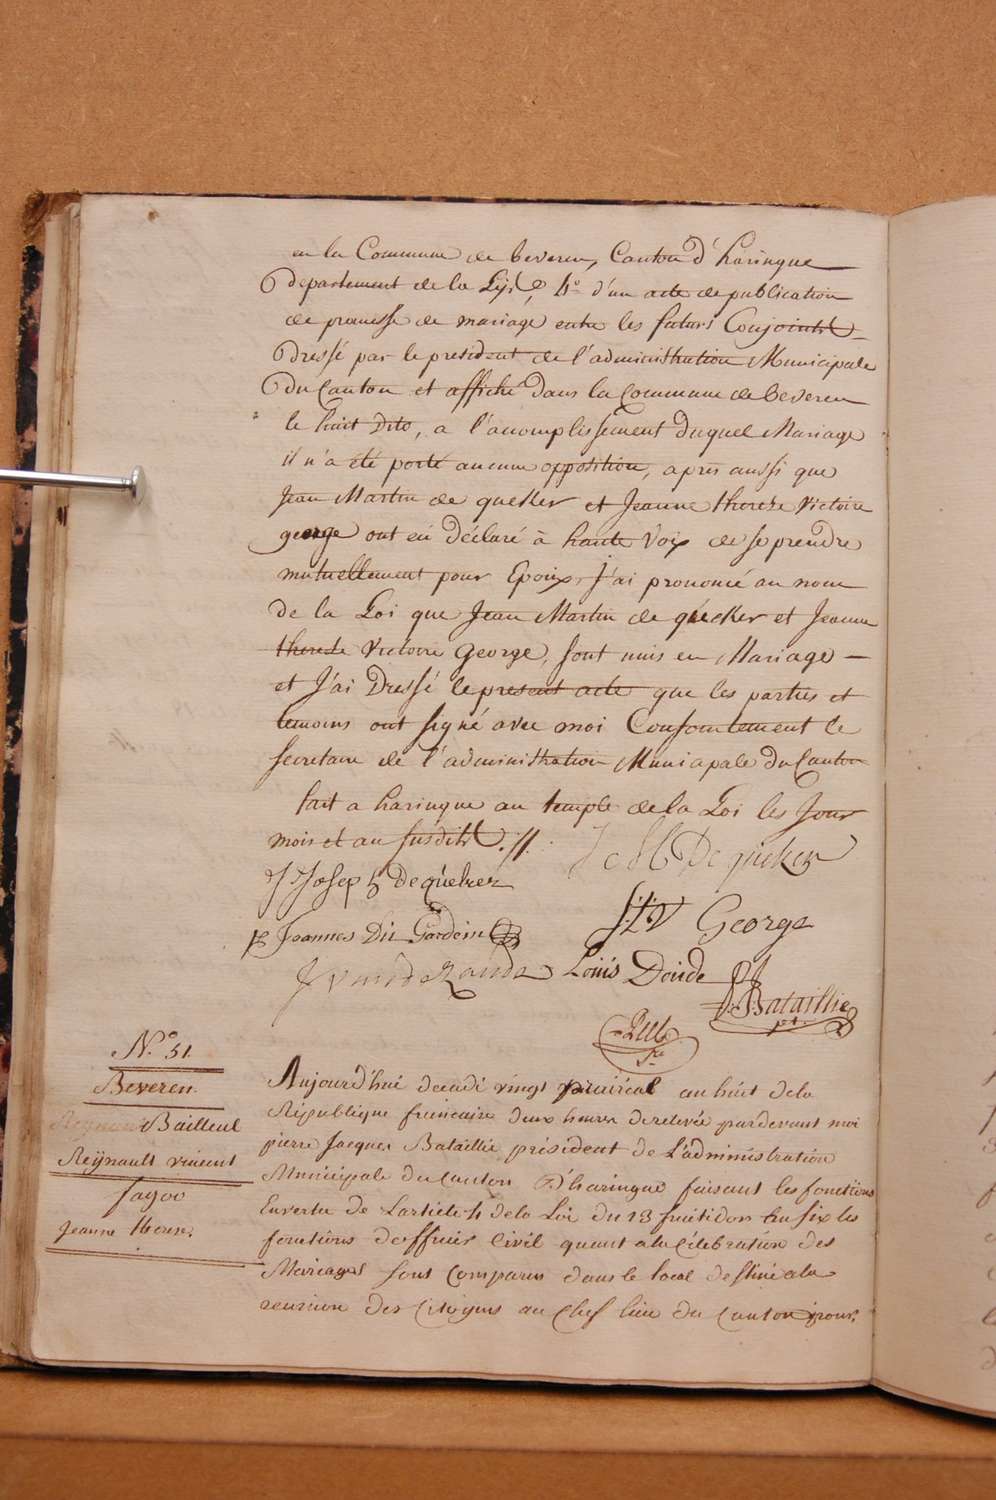 en la Commune de beveren, Canton d'haringue
Departement de la Lijs, 4.° d'un acte de publication
de promesse de mariage entre les futurs Conjoints
Dressé par le president de l'administration Municipale
Du Canton et affiché dans la Commune de Beveren
le huit Dito, a l'acomplissement duquel Mariage
il n'a été porté aucune opposition, apres aussi que
Jean Martin de queker et Jeanne thereze Victoire
george ont eu déclaré à haute Voix de se prendre
mutuellement pour Epoix, J'ai prononcé au nom
de la Loi que Jean Martin de quecker et Jeanne
thereze Victoire George, sont unis en Mariage
et J'ai Dressé le present acte que les parties et
temoins ont signé avec moi Consointement le
secretaire de l'administration Municapale Du Canton
fait a haringue au temple de la Loi les Jour
mois et an susdits .//.
De queker
Josep Dequeker
JTV George
Joannes Gardein
J vandezande Louis Doude
Bataillie
N.° 51
Beveren
Bailleul
Reÿnault vincent
fagoo
Jeanne
Aujourd'hui decadi vingt prairéal an huit de la
République francaise deux heures de relevée pardevant moi
pierre Jacques Bataillie président de L'administration
Municipale du Canton D'haringue faisant les fonctions
En vertu de L'article 4 de la Loi du 13 fruitidor an six les
fonctions d'officier Civil quant a la Célebration des
Mariages sont Comparus dans le local destiné a la
reunion des Citoyens au Chef lieu du Canton pour